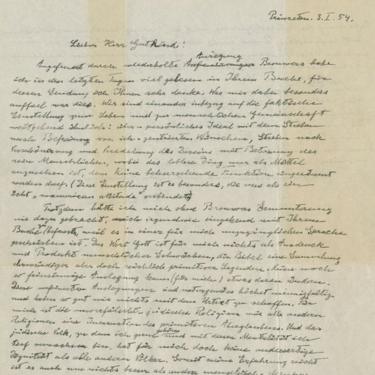 Princeton. 3. I. 54.
Lieber Herr Gutkind!
Angefeuert durch wiederholte Anregung Brouwers habe
ich in den letzten Tagen viel gelesen in Ihrem Buche, für
dessen Sendung ich Ihnen sehr danke. Was mir dabei besonders
auffiel war dies. Wir sind einander inbezug auf die faktische
Einstellung zum Leben und zur menschlichen Gemeinschaft
weitgehend ähnlich: über-persönliches Ideal mit dem Streben
nach Befreiung von ich-zentrierten Wünschen, Streben nach
Verschönerung und Veredelung des Daseins mit Betonung des
rein Menschlichen, wobei das leblose Ding nur als Mittel
anzusehen ist, dem keine beherrschende Funktion eingeräumt
werden darf. (Diese Einstellung ist es besonders, die uns als ein
echt „unamerican attitude" verbindet)
Trotzdem hätte ich mich ohne Brouwers Ermunterung
nie dazu gebracht, mich irgendwie eingehend mit Ihrem
Buche zu befassen, weil es in einer für mich unzugänglichen Sprache
geschrieben ist. Das Wort Gott ist für mich nichts als Ausdruck
und Produkt menschlicher Schwächen, die Bibel eine Sammlung
ehrwürdiger aber doch reichlich primitiver Legenden. Keine noch
so feinsinnige Auslegung kann (für mich) etwas daran ändern.
Diese verfeinerten Auslegungen sind naturgemäss höchst mannigfaltig
und haben so gut wie nichts mit dem Urtext zu schaffen. Für
mich ist die unverfälschte jüdische Religion wie alle anderen
Religionen eine Incarnation des primitiven Aberglaubens. Und das
jüdische Volk, zu dem ich gerne gehöre und mit dessen Mentalität ich
tief verwachsen bin, hat für mich doch keine andersartige
Dignität als alle anderen Völker. Soweit meine Erfahrung reicht
ist es auch um nichts besser als andere menschliche